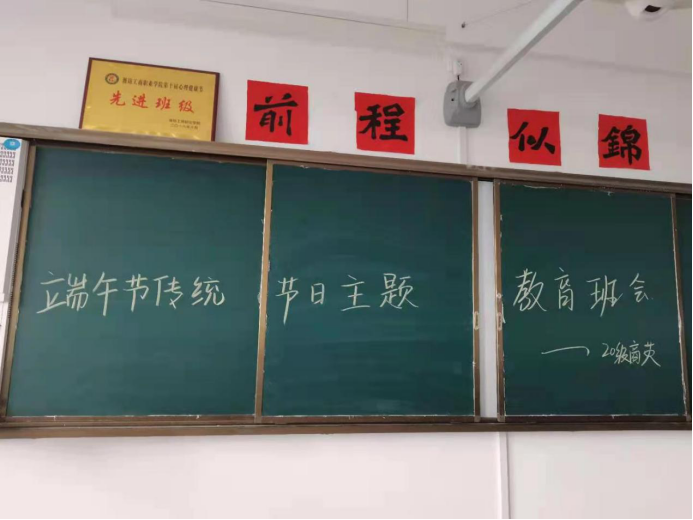 先进班级
前程似錦
端午节传统节日主题教育班会
——20级高英